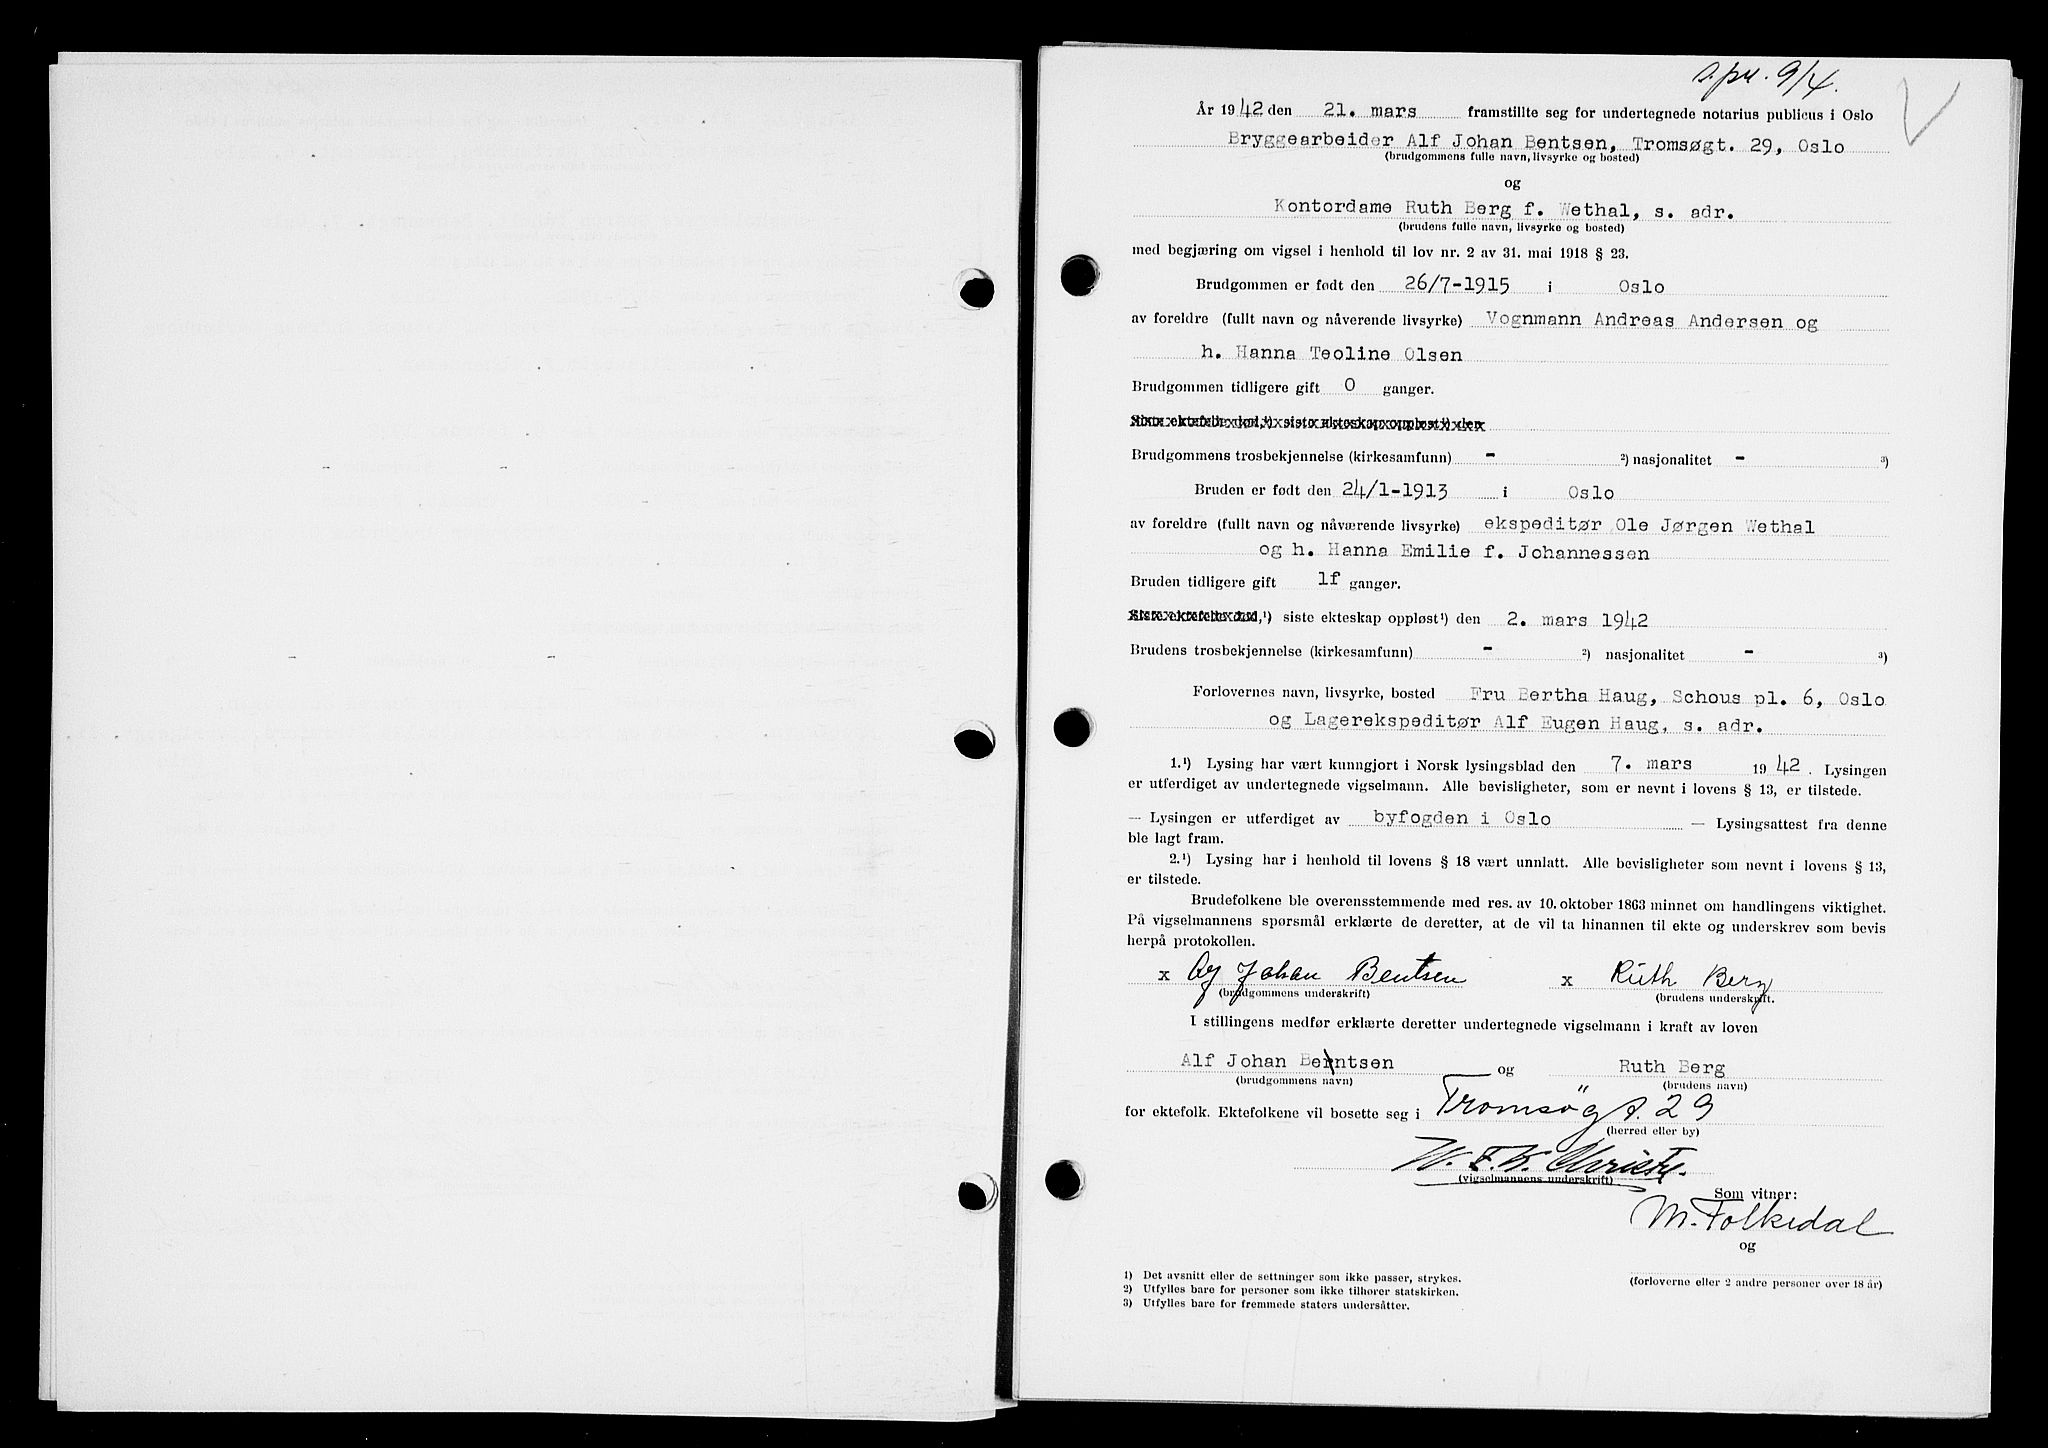 s. pr. 9/4.
År 1942 den 21. mars framstillte seg for undertegnede notarius publicus i Oslo
Bryggearbeider Alf Johan Bentsen, Tromsøgt. 29, Oslo
(brudgommens fulle navn, livsyrke og bosted)
og
Kontordame Ruth Berg f. Wethal, s. adr.
(brudens fulle navn, livsyrke og bosted)
med begjæring om vigsel i henhold til lov nr. 2 av 31. mai 1918 § 23.
Brudgommen er født den 26/7-1915 i Oslo
av foreldre (fullt navn og nåverende livsyrke) Vognmann Andreas Andersen og
h. Hanna Teoline Olsen
Brudgommen tidligere gift 0 ganger.
Siste ektefelle død,¹) siste ekteskap oppløst¹) den
Brudgommens trosbekjennelse (kirkesamfunn) - ²) nasjonalitet - ³)
Bruden er født den 24/1-1913 i Oslo
av foreldre (fullt navn og nåværende livsyrke) ekspeditør Ole Jørgen Wethal
og h. Hanna Emilie f. Johannessen
Bruden tidligere gift 1f ganger.
Siste ektefelle død,¹) siste ekteskap oppløst¹) den 2. mars 1942
Brudens trosbekjennelse (kirkesamfunn) - ²) nasjonalitet - ³)
Forlovernes navn, livsyrke, bosted Fru Bertha Haug, Schous pl. 6, Oslo
og Lagerekspeditør Alf Eugen Haug, s. adr.
1.¹) Lysing har vært kunngjort i Norsk lysingsblad den 7. mars 1942. Lysingen
er utferdiget av undertegnede vigselmann. Alle bevisligheter, som er nevnt i lovens § 13, er tilstede.
— Lysingen er utferdiget av byfogden i Oslo — Lysingsattest fra denne
ble lagt fram.
2.¹) Lysing har i henhold til lovens § 18 vært unnlatt. Alle bevisligheter som nevnt i lovens § 13,
er tilstede.
Brudefolkene ble overensstemmende med res. av 10. oktober 1863 minnet om handlingens viktighet.
På vigselmannens spørsmål erklærte de deretter, at de vil ta hinannen til ekte og underskrev som bevis
herpå protokollen.
x Alf Johan Bentsen x Ruth Berg
(brudgommens underskrift) (brudens underskrift.
I stillingens medfør erklærte deretter undertegnede vigselmann i kraft av loven
Alf Johan Bentsen og Ruth Berg
(brudgommens navn) (brudens navn)
for ektefolk. Ektefolkene vil bosette seg i Tromsøgt. 29
(herred eller by)
W. F. K. Christie.
(vigselmannens underskrift)
Som vitner:
M. Folkedal
og
(forloverne eller 2 andre personer over 18 år)
1) Det avsnitt eller de settninger som ikke passer, strykes.
2) Utfylles bare for personer som ikke tilhører statskirken.
3) Utfylles bare for fremmede staters undersåtter.